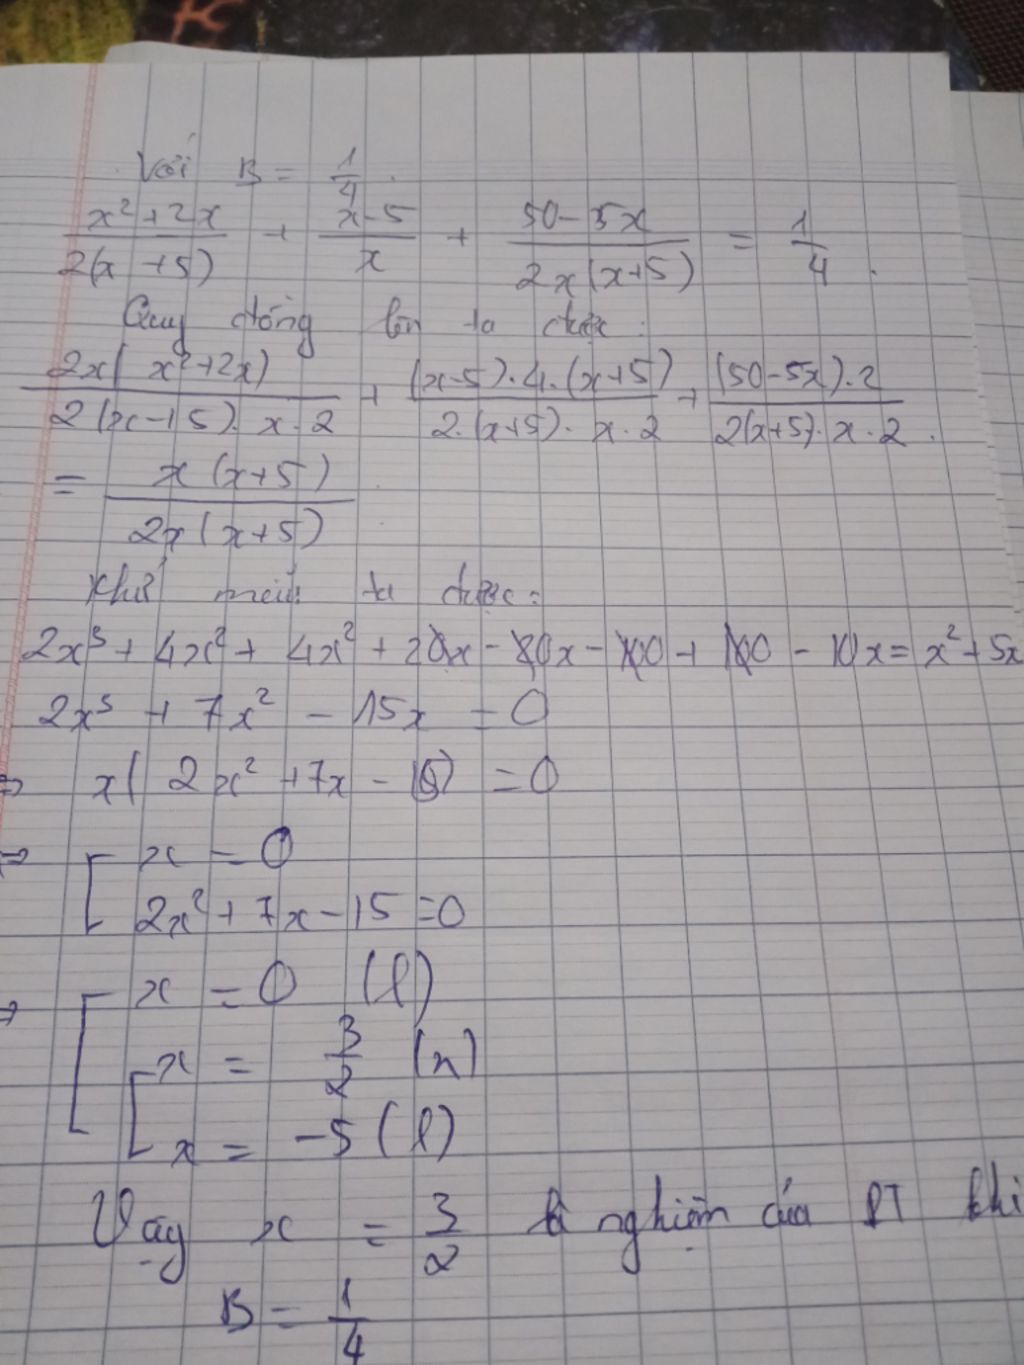 Với B = 1/4.
(x² + 2x)/(2(x + 5)) + (x - 5)/x + (50 - 5x)/(2x(x+5)) = 1/4.
Quy đồng lên ta được:
(2x(x² + 2x))/(2(x + 5).x.2) + ((x-5).4.(x+5))/(2.(x+5).x.2) + ((50-5x).2)/(2(x+5).x.2).
= (x(x+5))/(2x(x+5)).
Khử mẫu ta được:
2x³ + 4x² + 4x² + 20x - 20x - 100 + 100 - 10x = x² + 5x
2x³ + 7x² - 15x = 0
⇒ x(2x² + 7x - 15) = 0
⇒ [ x = 0
2x² + 7x - 15 = 0
⇒ [ x = 0 (l)
[ x = 3/2 (n)
x = -5 (l)
Vậy x = 3/2 là nghiệm của PT khi
B = 1/4